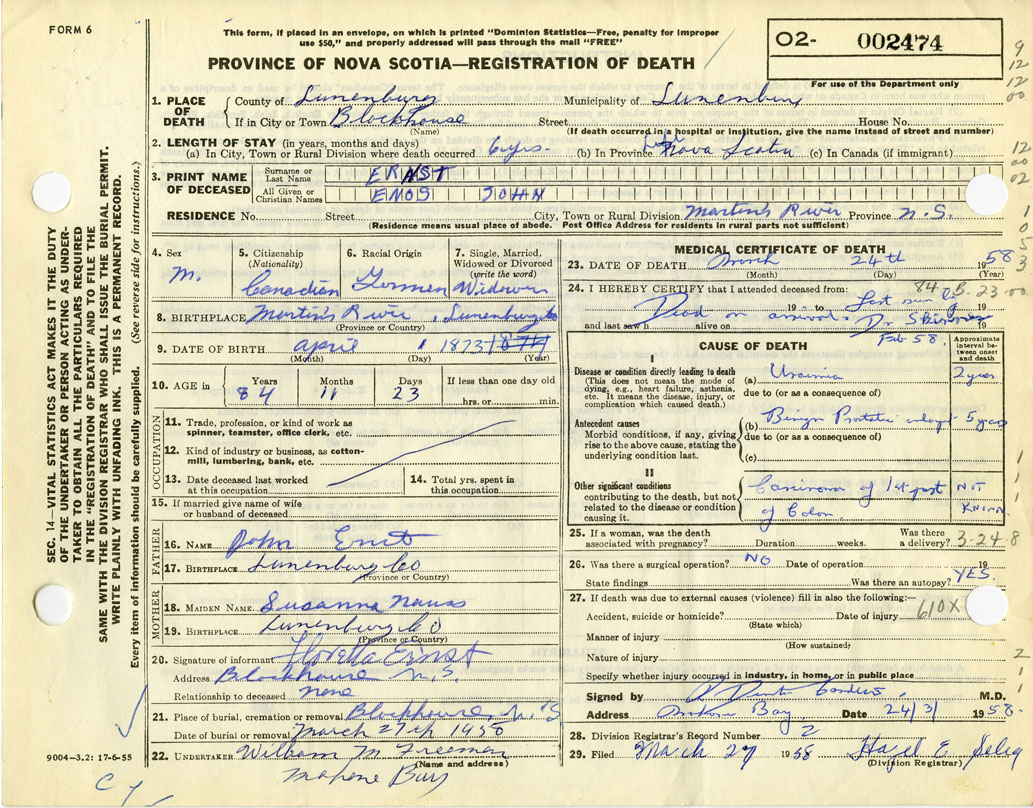 FORM 6
This form, if placed in an envelope, on which is printed "Dominion Statistics—Free, penalty for improper
use $50," and properly addressed will pass through the mail "FREE"
PROVINCE OF NOVA SCOTIA—REGISTRATION OF DEATH
O2- 002474
For use of the Department only
9
12
12
00
1. PLACE OF DEATH
County of Lunenburg Municipality of Lunenburg
If in City or Town Blockhouse Street House No.
(Name) (If death occurred in a hospital or institution, give the name instead of street and number)
2. LENGTH OF STAY (in years, months and days)
(a) In City, Town or Rural Division where death occurred 6 yrs. (b) In Province Nova Scotia (c) In Canada (if immigrant)
12
00
02
3. PRINT NAME OF DECEASED
Surname or Last Name ERNST
All Given or Christian Names ENOS JOHN
RESIDENCE No. Street City, Town or Rural Division Martin's River Province N.S.
(Residence means usual place of abode. Post Office Address for residents in rural parts not sufficient)
1
0
5
3
4. Sex M.
5. Citizenship (Nationality) Canadian
6. Racial Origin German
7. Single, Married, Widowed or Divorced (write the word) Widower
8. BIRTHPLACE Martin's River, Lunenburg Co
(Province or Country)
9. DATE OF BIRTH April 1 1873 1874
(Month) (Day) (Year)
10. AGE in Years 84 Months 11 Days 23 If less than one day old hrs. or min.
OCCUPATION
11. Trade, profession, or kind of work as
spinner, teamster, office clerk, etc.
12. Kind of industry or business, as cotton-
mill, lumbering, bank, etc.
13. Date deceased last worked
at this occupation
14. Total yrs. spent in
this occupation
15. If married give name of wife
or husband of deceased
FATHER
16. NAME John Ernst
17. BIRTHPLACE Lunenburg Co
(Province or Country)
MOTHER
18. MAIDEN NAME Susanna Nauss
19. BIRTHPLACE Lunenburg Co
(Province or Country)
20. Signature of informant Floretta Ernst
Address Blockhouse N.S.
Relationship to deceased none
21. Place of burial, cremation or removal Blockhouse, N.S
Date of burial or removal March 27th 1958
22. UNDERTAKER William M Freeman
(Name and address)
Mahone Bay
MEDICAL CERTIFICATE OF DEATH
23. DATE OF DEATH March 24th 1958
(Month) (Day) (Year)
84 B-23-00
24. I HEREBY CERTIFY that I attended deceased from:
19 to Last seen by 19
and last saw h alive on 19
Dead on arrival. Dr
Feb 58.
CAUSE OF DEATH
Approximate interval between onset and death
I
Disease or condition directly leading to death
(This does not mean the mode of
dying, e.g., heart failure, asthenia,
etc. It means the disease, injury, or
complication which caused death.)
(a) Uraemia 2 years
due to (or as a consequence of)
Antecedent causes
Morbid conditions, if any, giving
rise to the above cause, stating the
underlying condition last.
(b) Benign Prostatic enlarg 5 years
due to (or as a consequence of)
(c)
II
Other significant conditions
contributing to the death, but not
related to the disease or condition
causing it.
Carcinoma of 1st part NOT
of Colon. KNOWN.
25. If a woman, was the death
associated with pregnancy? Duration weeks. Was there a delivery?
3-24-8
26. Was there a surgical operation? NO Date of operation 19
State findings Was there an autopsy? YES.
27. If death was due to external causes (violence) fill in also the following:—
Accident, suicide or homicide? Date of injury
(State which)
610X
Manner of injury
(How sustained)
Nature of injury
Specify whether injury occurred in industry, in home, or in public place
Signed by M.D.
Address Mahone Bay Date 24/3/ 1958.
28. Division Registrar's Record Number 2
29. Filed March 27 1958 Hazel E
(Division Registrar)
SEC. 14—VITAL STATISTICS ACT MAKES IT THE DUTY
OF THE UNDERTAKER OR PERSON ACTING AS UNDER-
TAKER TO OBTAIN ALL THE PARTICULARS REQUIRED
IN THE "REGISTRATION OF DEATH" AND TO FILE THE
SAME WITH THE DIVISION REGISTRAR WHO SHALL ISSUE THE BURIAL PERMIT.
WRITE PLAINLY WITH UNFADING INK. THIS IS A PERMANENT RECORD.
Every item of information should be carefully supplied. (See reverse side for instructions.)
9004-3.2: 17-6-55